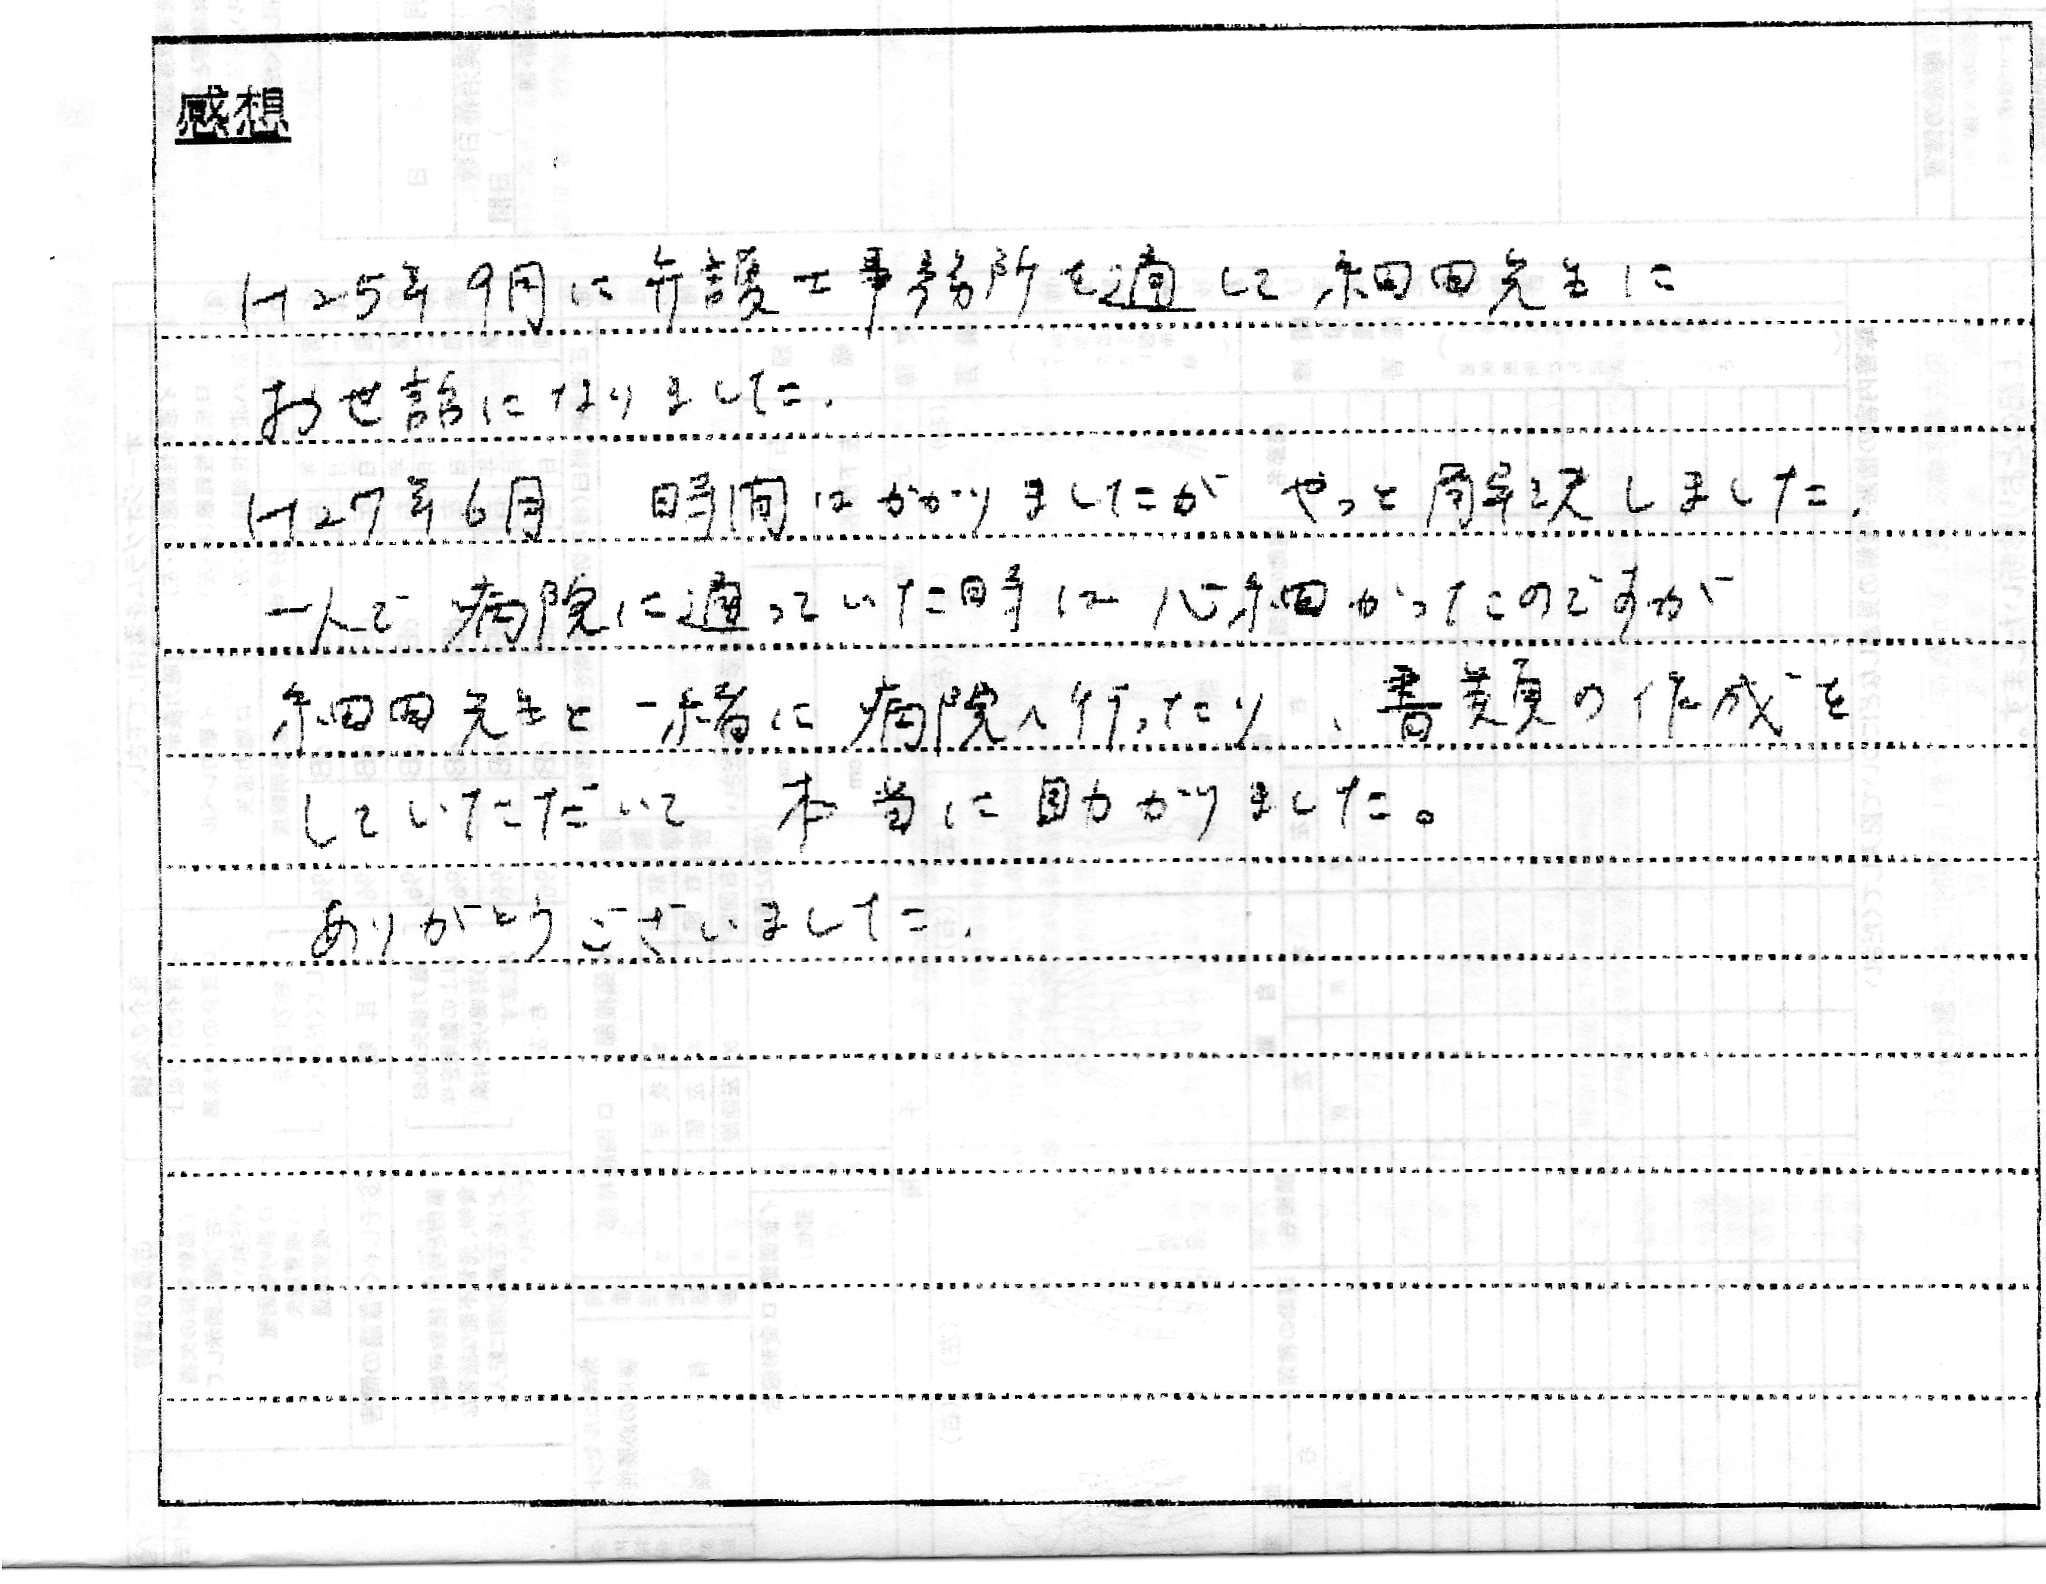 感想
H25年9月に弁護士事務所を通して 細田先生に
お世話になりました.
H27年6月 時間はかかりましたが やっと解決しました.
一人で 病院に通っていた時は 心細かったのですが
細田先生と 一緒に 病院へ行ったり、書類の作成を
していただいて 本当に助かりました。
ありがとうございました.